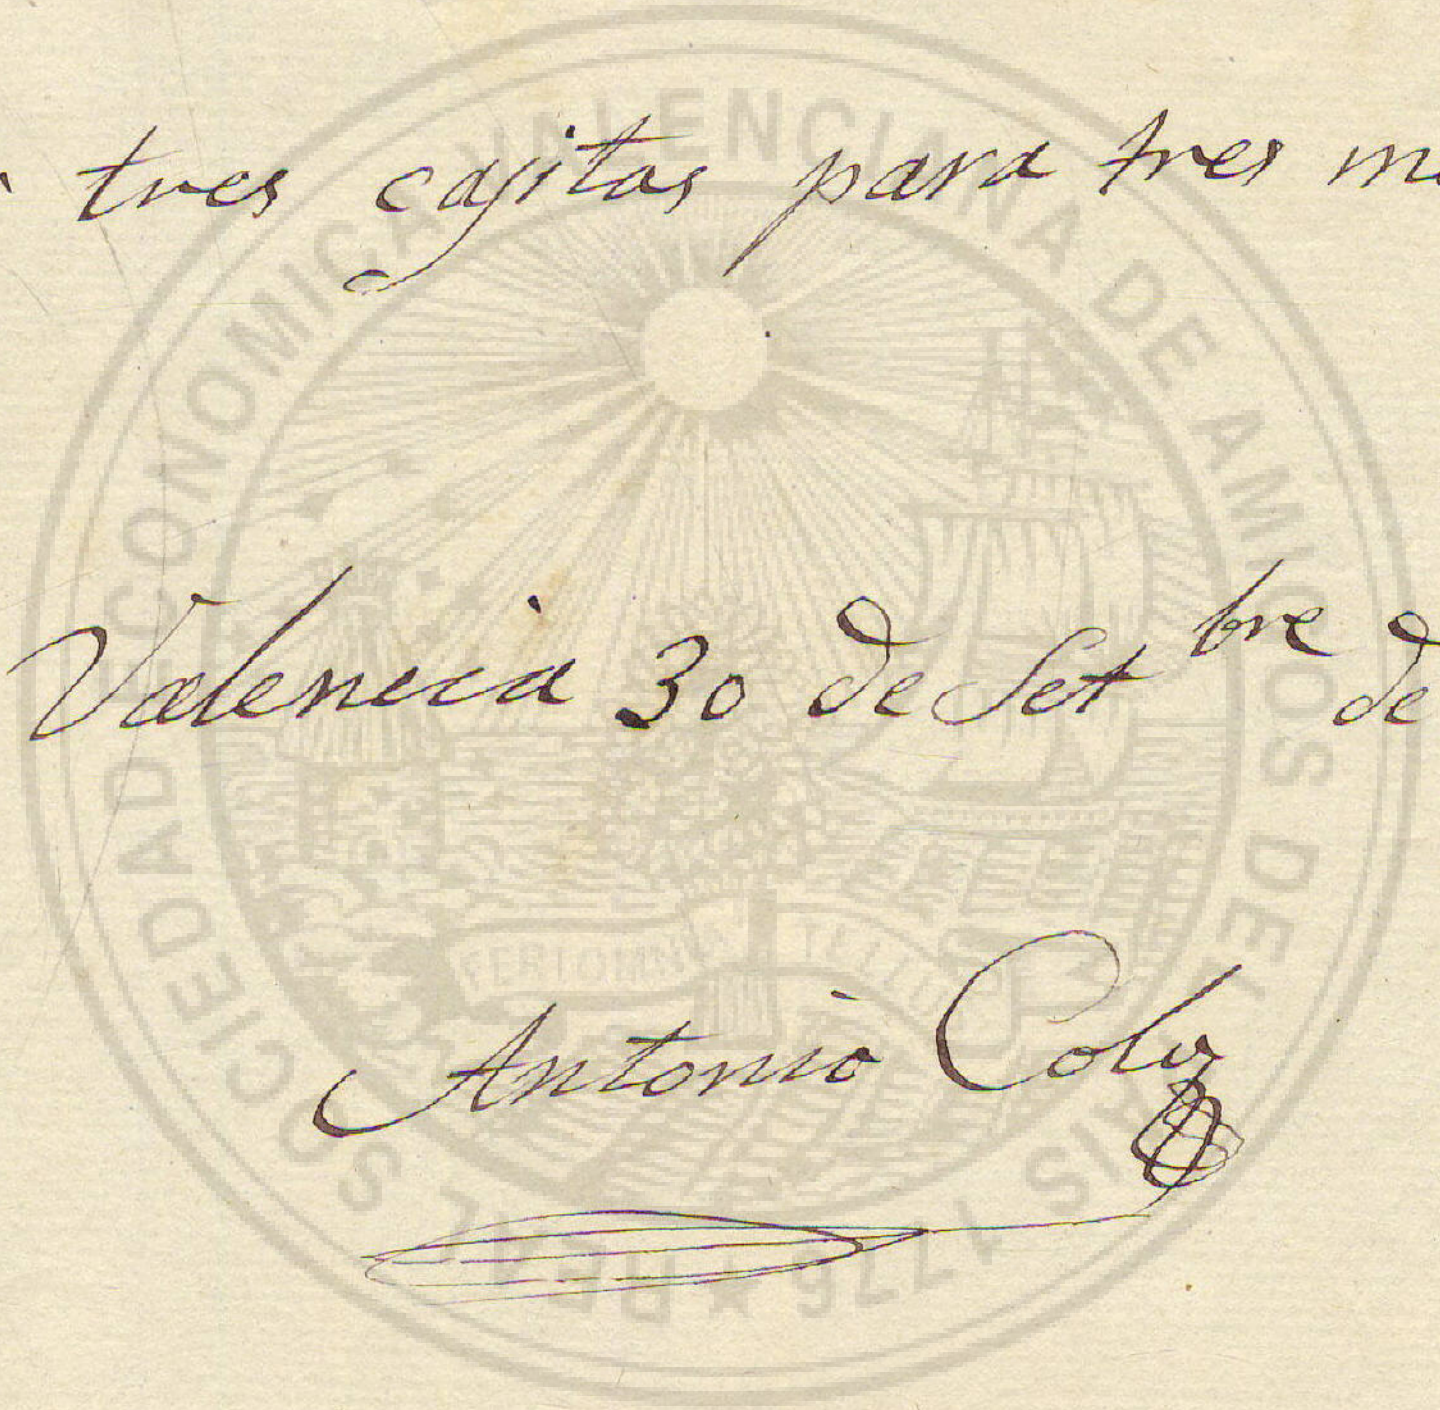 tres cajitas para tres
Valencia 30 de Setbre de
Antonio
REAL SOCIEDAD ECONOMICA VALENCIANA DE AMIGOS DEL PAIS 1776